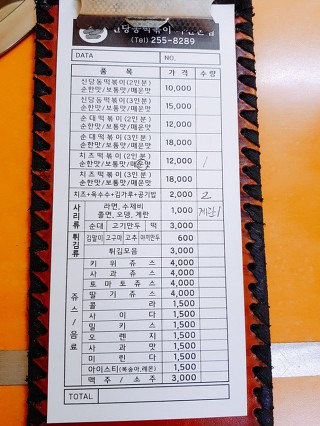 신당동떡볶이
(Tel) 255-8289
DATA NO.
품 목 가 격 수 량
신당동떡볶이(2인분)
순한맛/보통맛/매운맛 10,000
신당동떡볶이(3인분)
순한맛/보통맛/매운맛 15,000
순대떡볶이(2인분)
순한맛/보통맛/매운맛 12,000
순대떡볶이(3인분)
순한맛/보통맛/매운맛 18,000
치즈떡볶이(2인분)
순한맛/보통맛/매운맛 12,000 1
치즈떡볶이(3인분)
순한맛/보통맛/매운맛 18,000
치즈+옥수수+김가루+공기밥 2,000 2
사리류 라면, 수제비
쫄면, 오뎅, 계란 1,000 계란1
순대 고기만두 떡 3,000
튀김류 김말이 고구마 고추 야끼만두 600
튀김모음 3,000
쥬스/음료 키위쥬스 4,000
사과쥬스 4,000
토마토쥬스 4,000
딸기쥬스 4,000
콜라 1,500
사이다 1,500
밀키스 1,500
오렌지 1,500
사과맛 1,500
미린다 1,500
아이스티(복숭아,레몬) 1,500
맥주/소주 3,000
TOTAL